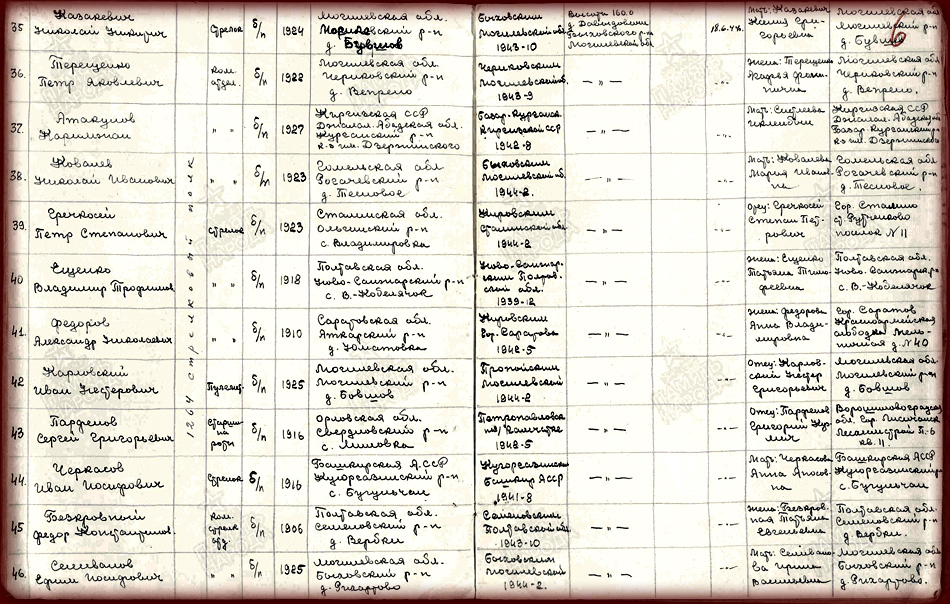 6
35 Казакевич Николай Никитич стрелок б/п 1924 Могилевская обл. Могилевский р-н д. Бувшов Быховским Могилевской об. 1943-10 Высота 160.0 д. Давыдовичи Быховского р-н Могилевской обл 18.6.44г. Мать: Казакевич Григорьевна Могилевская обл. Могилевский р-н д. Бувшов
36. Терещенко Петр Яковлевич ком. отдел. б/п 1922 Могилевская обл. Чериковский р-н д. Вепрено. Чериковским Могилевской об. 1943-9 —"— -"- Жена: Терещенко Могилевская обл. Чериковский р-н д. Вепрено.
37. Атакулов " " б/п 1927 Киргизская ССР Джалал. Абадская обл. к-з им. Дзержинского Базар-Курганск. Киргизской ССР 1942-8 —"— -"- Мать: Киргизская ССР Джалал. Абадская Базар-Курганский р-н к-з им. Дзержинского
38. Ковалев Николай Иванович " " б/п 1923 Гомельская обл Рогачевский р-н д. Тесновое Быховским Могилевской об. 1944-2. —"— -"- Мать: Ковалева Мария Ивановна Гомельская обл. Рогачевский р-н д. Тесновое.
39. Гречкосей Петр Степанович стрелок б/п 1923 Сталинская обл. Ольгинский р-н с. Владимировка Кировским Сталинской обл 1944-2 —"— -"- Отец: Гречкосей Степан Петрович Гор. Сталино ст. Рутченково поселок N 11
40 Ещенко Владимир Трофимов. " " б/п 1918 Полтавская обл. Ново-Санжарский р-н с. В.-Кобелячок Ново-Санжарским Полтавской обл. 1939-12 —"— -"- Жена: Ещенко Татьяна Тимофеевна Полтавская обл. Ново. Санжарск. р-н с. В-Кобелячок
41. Федоров Александр Николаевич " " б/п 1910 Саратовская обл. Аткарский р-н д. Юматовка Кировским Гор. Саратова 1942-5 —"— -"- Жена: Федорова Анна Владимировна Гор. Саратов Красноармейская слободка д. N 40
42 Карловский Иван Нестерович Пулемет. б/п 1925 Могилевская обл. Могилевский р-н д. Бовшов Пропойским Могилевской 1944-2 —"— -"- Отец: Карловский Нестер Григорьевич Могилевская обл. Могилевский р-н д. Бовшов
43 Парфенов Сергей Григорьевич Старшина роты б/п 1916 Орловская обл. Свердловский р-н с. Миловка Петропавловским н/Камчатке 1942-5 —"— -"- Отец: Парфенов Григорий Ворошиловоград. обл. Гор. Лисичанск кв. 11.
44. Черкасов Иван Иосифович Стрелок б/п 1916 Башкирская АССР с. Бугульчан Башкир АССР 1941-8 —"— -"- Мать: Черкасова Анна Башкирская АССР с. Бугульчан
45 Безкровный Федор Константинов. ком. стрелк отд. б/п 1906 Полтавская обл. Семеновский р-н д. Вербки Семеновским Полтавской об. 1943-10 —"— -"- Жена: Безкровная Татьяна Евгеньевна Полтавская обл. Семеновский р-н д. Вербки.
46. Селиванов Ефим Иосифович " " б/п 1925 Могилевская обл. Быховский р-н Быховским Могилевской 1944-2. —"— -"- Мать: Селиванова Ирина Васильевна Могилевская обл. Быховский р-н
1264 стрелковый полк